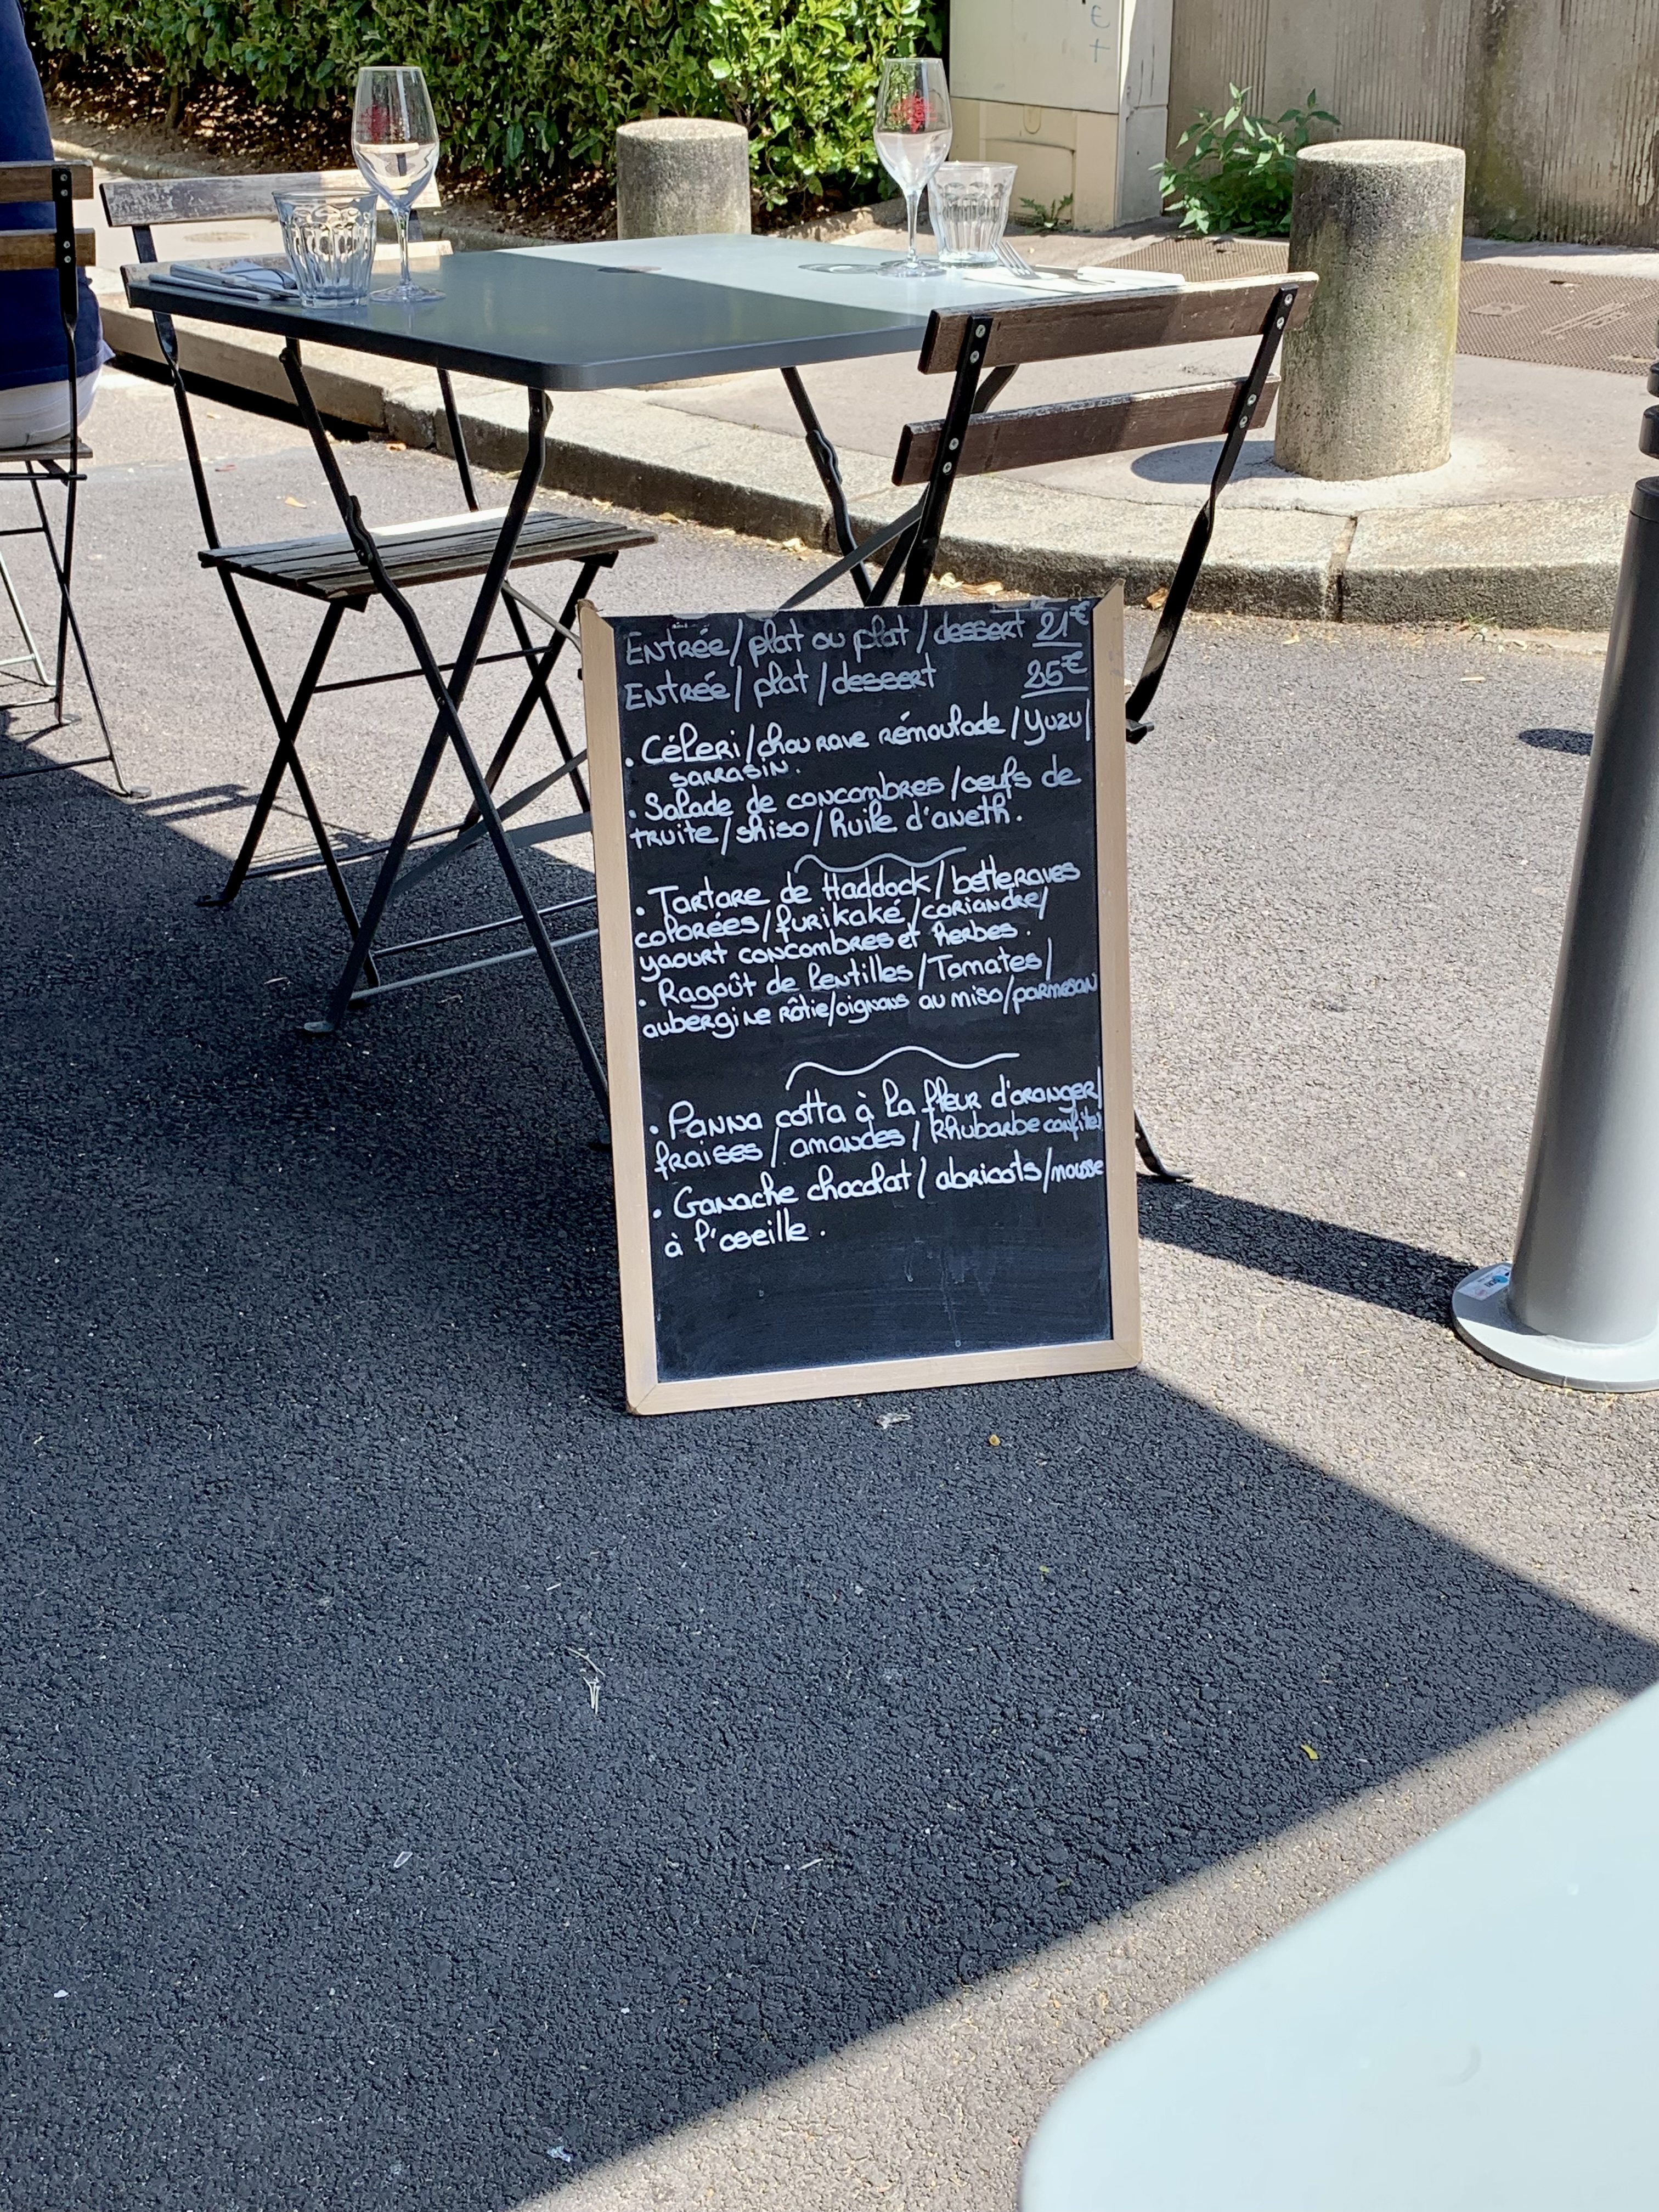 Entrée/plat ou plat/dessert 21€
Entrée/plat/dessert 25€
. Céleri/chou rave rémoulade/yuzu/
sarrasin.
. Salade de concombres/oeufs de
truite/shiso/huile d'aneth.
. Tartare de Haddock/betteraves
colorées/furikaké/coriandre/
yaourt concombres et herbes.
. Ragoût de lentilles/Tomates/
aubergine rôtie/oignons au miso/parmesan
. Panna cotta à la fleur d'oranger/
fraises/amandes/rhubarbe confite.
. Ganache chocolat/abricots/mousse
à l'oseille.